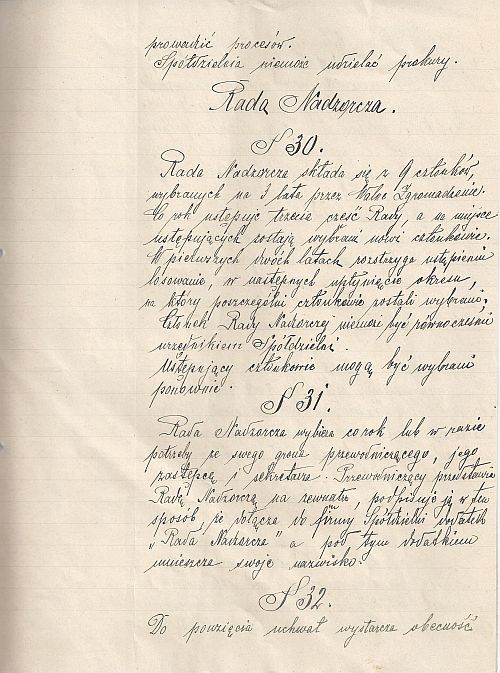 prowadzić procesów.
Spółdzielnia niemoże udzielać prokury.
Rada Nadzorcza.
§ 30.
Rada Nadzorcza składa się z 9 członków,
wybranych na 3 lata przez Walne Zgromadzenie.
Co rok ustępuje trzecia część Rady, a na miejsce
ustępujących zostają wybrani nowi członkowie.
W pierwszych dwóch latach rozstrzyga ustąpienie
losowanie, w następnych upłynięcie okresu,
na który poszczególni członkowie zostali wybrani.
Członek Rady Nadzorczej niemoże być równocześnie
urzędnikiem Spółdzielni.
Ustępujący członkowie mogą być wybrani
ponownie.
§ 31.
Rada Nadzorcza wybiera co rok lub w razie
potrzeby ze swego grona przewodniczącego, jego
zastępcę i sekretarza. Przewodniczący przedstawia
Radę Nadzorczą na zewnątrz, podpisuje ją w ten
sposób, że dołącza do firmy Spółdzielni dodatek
„Rada Nadzorcza" a pod tym dodatkiem
umieszcza swoje nazwisko.
§ 32.
Do powzięcia uchwał wystarcza obecność